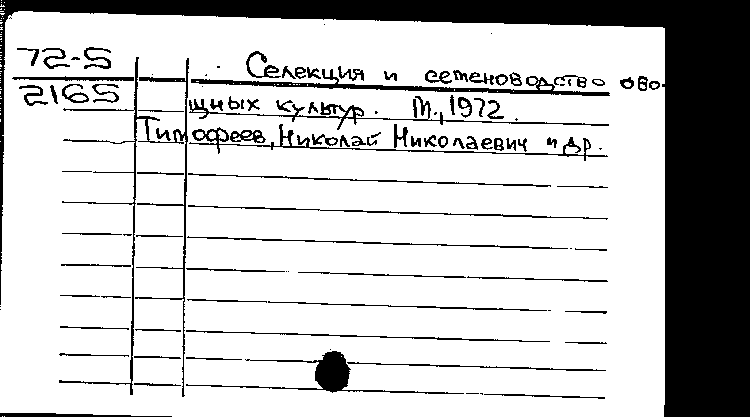 72-5
2165
Селекция и семеноводство ово-
щных культур. М., 1972.
Тимофеев, Николай Николаевич и др.